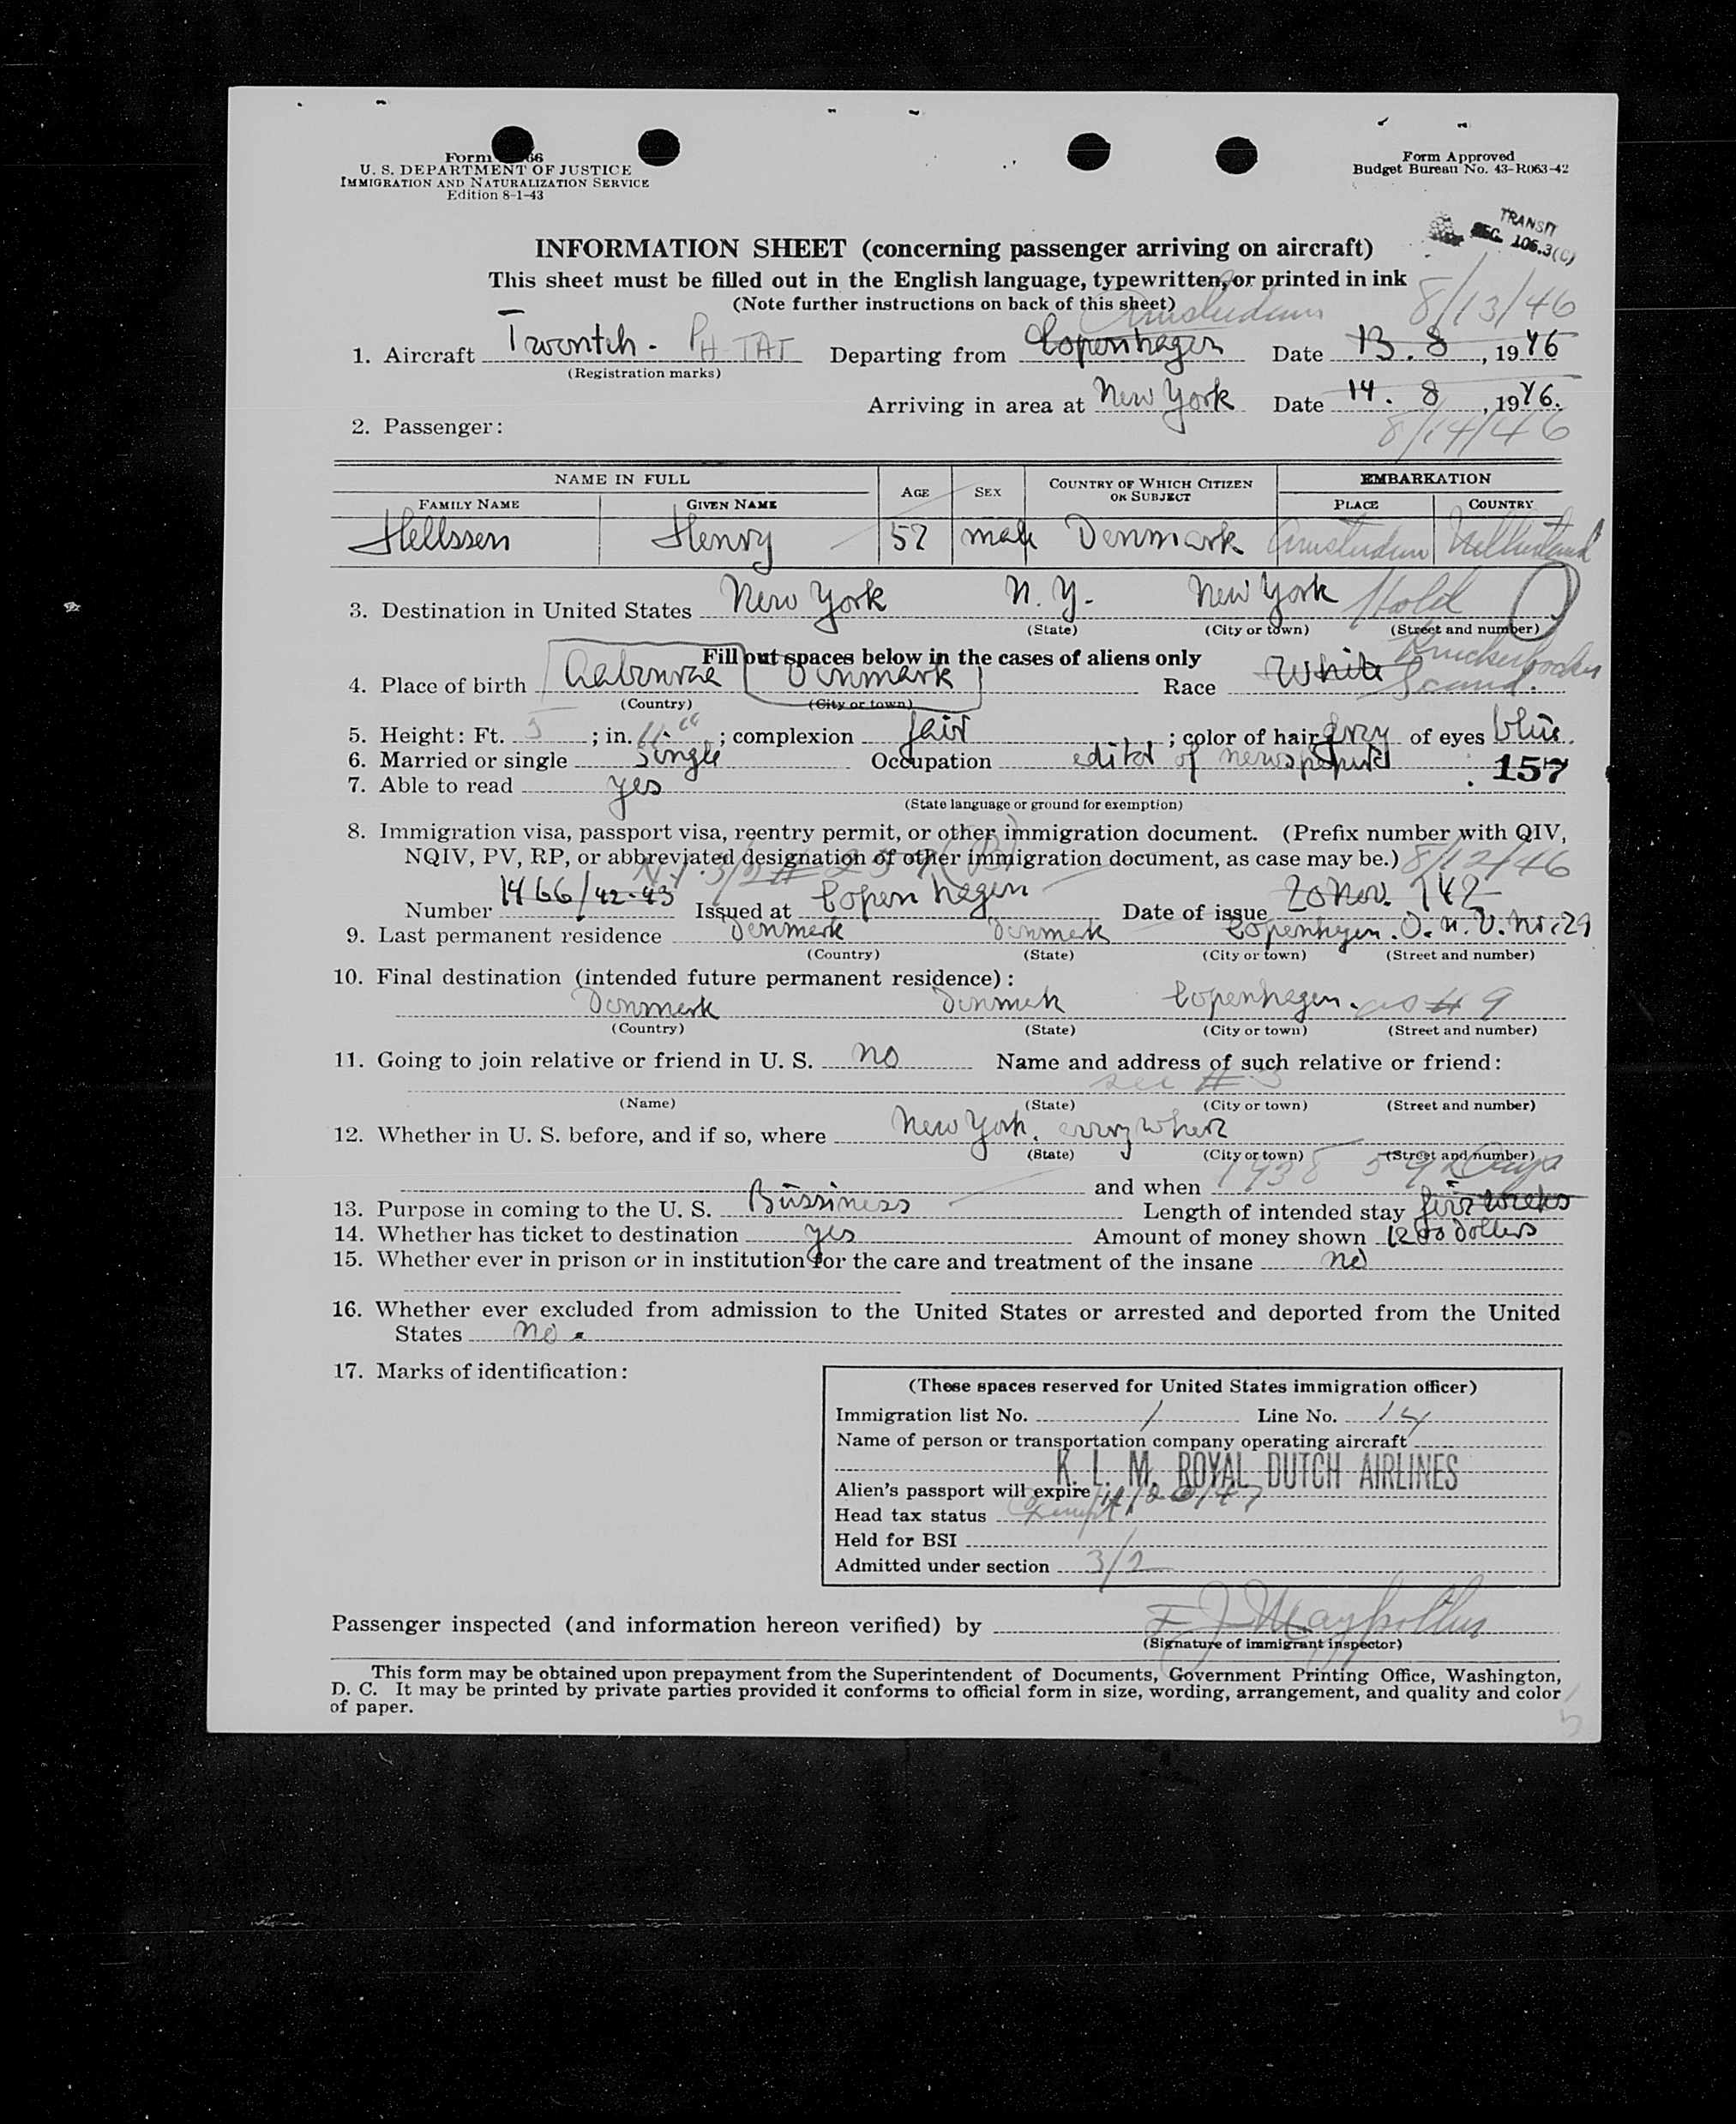 Form 66
U. S. DEPARTMENT OF JUSTICE
IMMIGRATION AND NATURALIZATION SERVICE
Edition 8-1-43
Form Approved
Budget Bureau No. 43-R063-42
TRANSIT
SEC. 105.3(C)
INFORMATION SHEET (concerning passenger arriving on aircraft)
This sheet must be filled out in the English language, typewritten, or printed in ink
(Note further instructions on back of this sheet)
Amsterdam 8/13/46
1. Aircraft PH-TAT Departing from Copenhagen Date 13. 8, 1946
(Registration marks)
Arriving in area at New York Date 14. 8, 1946.
8/14/46
2. Passenger:
NAME IN FULL AGE SEX COUNTRY OF WHICH CITIZEN OR SUBJECT EMBARKATION
FAMILY NAME GIVEN NAME PLACE COUNTRY
Hellssen Henry 52 male Denmark Amsterdam Netherland
3. Destination in United States New York N.Y. New York Hotel
(State) (City or town) (Street and number)
Knickerbocker
Fill out spaces below in the cases of aliens only
4. Place of birth Aabenraa Denmark Race White Scand.
(Country) (City or town)
5. Height: Ft. 5; in. 11"; complexion fair; color of hair grey of eyes blue.
6. Married or single single Occupation editor of newspaper
157
7. Able to read yes
(State language or ground for exemption)
8. Immigration visa, passport visa, reentry permit, or other immigration document. (Prefix number with QIV,
NQIV, PV, RP, or abbreviated designation of other immigration document, as case may be.) 8/12/46
Number 1466/42-43 Issued at Copenhagen Date of issue 20 Nov. 142
9. Last permanent residence Denmark Denmark Copenhagen. Ø.N.V. Nr. 29
(Country) (State) (City or town) (Street and number)
10. Final destination (intended future permanent residence):
Denmark Denmark Copenhagen. as # 9
(Country) (State) (City or town) (Street and number)
11. Going to join relative or friend in U. S. no Name and address of such relative or friend:
see # 3
(Name) (State) (City or town) (Street and number)
12. Whether in U. S. before, and if so, where New York. everywhere
(State) (City or town) (Street and number)
and when 1938 Days
13. Purpose in coming to the U. S. Bussiness Length of intended stay five weeks
14. Whether has ticket to destination yes Amount of money shown 1200 dollers
15. Whether ever in prison or in institution for the care and treatment of the insane no
16. Whether ever excluded from admission to the United States or arrested and deported from the United
States no.
17. Marks of identification:
(These spaces reserved for United States immigration officer)
Immigration list No. 1 Line No. 14
Name of person or transportation company operating aircraft
K. L. M. ROYAL DUTCH AIRLINES
Alien's passport will expire 11/20/47
Head tax status Exempt
Held for BSI
Admitted under section 3/2
Passenger inspected (and information hereon verified) by
(Signature of immigrant inspector)
This form may be obtained upon prepayment from the Superintendent of Documents, Government Printing Office, Washington,
D. C. It may be printed by private parties provided it conforms to official form in size, wording, arrangement, and quality and color
of paper.